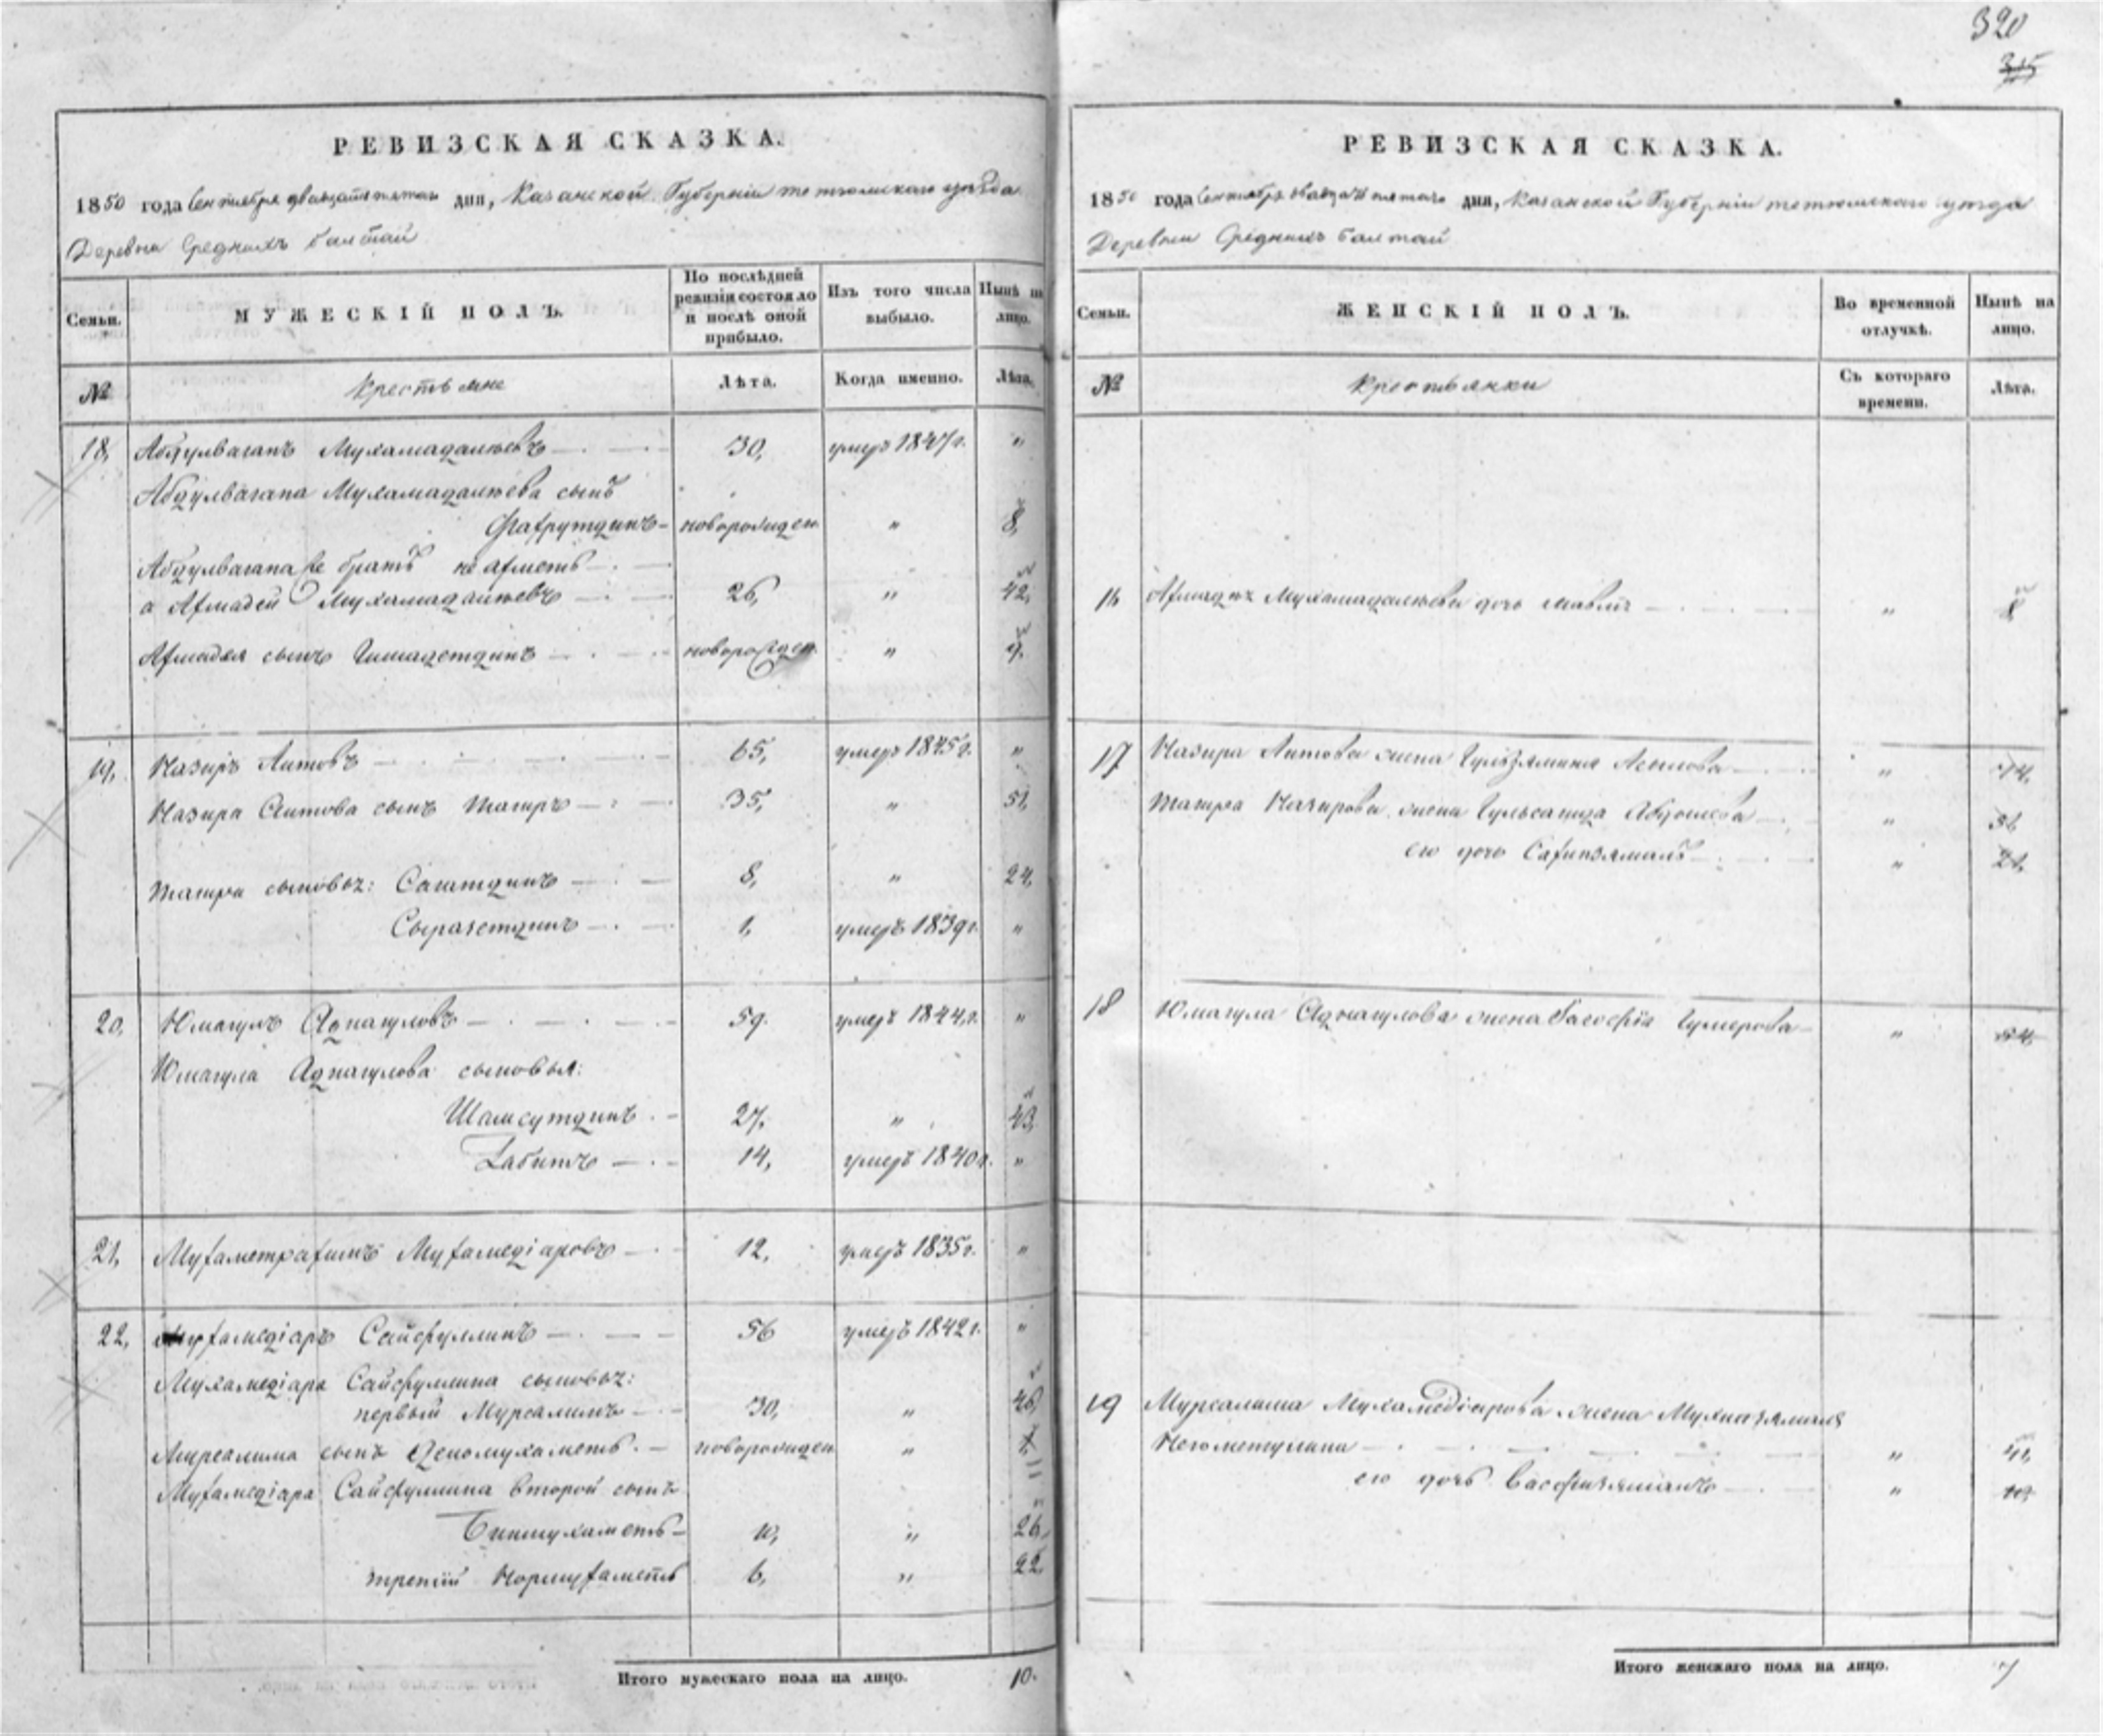 320
315
РЕВИЗСКАЯ СКАЗКА.
1850 года Сентября двадцать пятаго дня, Казанской Губерніи тетюшскаго уѣзда
Деревни Среднихъ Балтай
Семьи.
МУЖЕСКІЙ ПОЛЪ.
По послѣдней ревизіи состояло и послѣ оной прибыло.
Изъ того числа выбыло.
Нынѣ на лицо.
№
Крестьяне
Лѣта.
Когда именно.
Лѣта.
18, Абдулвагапъ Мухамадалѣевъ 30, умеръ 1847 г. "
Абдулвагапа Мухамадалѣева сынъ
Фахрутдинъ новорожден. " 8,
Абдулвагапа братъ не Ахметь
а Ахмадей Мухамадалѣевъ 26, " 42,
Ахмадея сынъ новорожден. " 9.
19, Назиръ Аитовъ 65, умеръ 1845 г. "
Назира Аитова сынъ Тагиръ 35, " 51,
Тагира сыновья: 8, " 24,
Сыразетдинъ 1, умеръ 1839 г. "
20, Юмагулъ Аднагуловъ 59. умеръ 1844, г. "
Юмагула Аднагулова сыновья:
Шамсутдинъ 27. " 43,
Габитъ 14, умеръ 1840 г. "
21, Мухаметрахимъ Мухамедіаровъ 12, умеръ 1835 г. "
22, Мухамедіаръ Сайфуллинъ 56 умеръ 1842 г. "
Мухамедіара Сайфуллина сыновья:
первый Мурсалимъ 30, " 46,
Мурсалима сынъ новорожден " 11
Мухамедіара Сайфуллина второй сынъ
Бикмухаметь 10, " 26,
третій Нормухаметь 6, " 22,
Итого мужескаго пола на лицо. 10.
РЕВИЗСКАЯ СКАЗКА.
1850 года Сентября двадцать пятаго дня, Казанской Губерніи тетюшскаго уѣзда
Деревни Среднихъ Балтай
Семьи.
ЖЕНСКІЙ ПОЛЪ.
Во временной отлучкѣ.
Нынѣ на лицо.
№
Крестьянки
Съ котораго времени.
Лѣта.
16 Мухамадалѣева дочь "
17 Назира Аитова жена "
Тагира Назирова жена "
его дочь "
18 Юмагула Аднагулова жена Гумерова "
19 Мурсалима Мухамедіярова жена
" 41,
его дочь "
Итого женскаго пола на лицо. 7